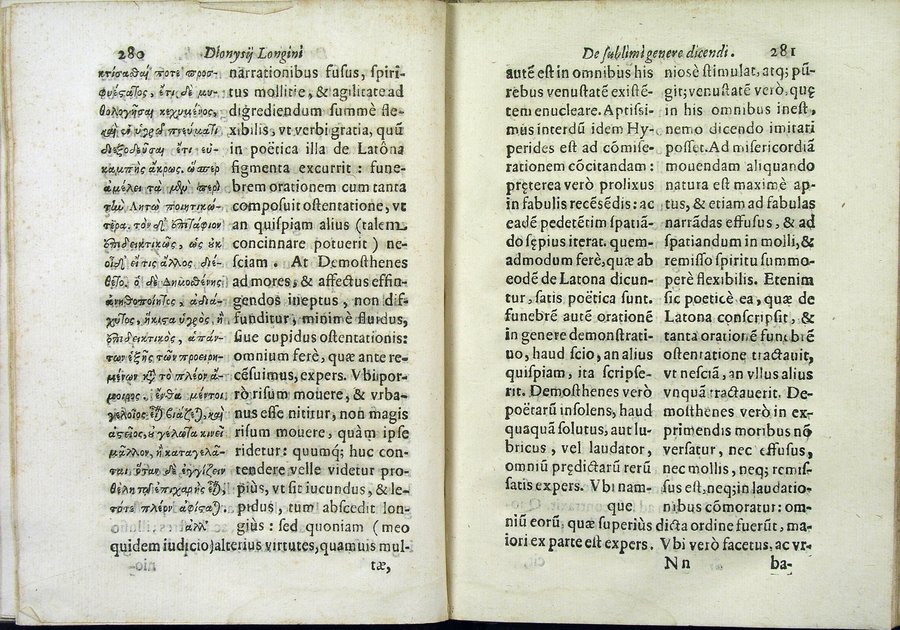 280 Dionysij Longini
κτίσασθαί ποτε προσ-
φυέστατος, ἔτι δὲ μυ-
θολογῆσαι κεχυμένος,
καὶ ἐν ὑγρῷ πνεύματι
διεξοδεῦσαι ἔτι εὐ-
καμπὴς ἄκρως. ὥσπερ
ἀμέλει τὰ μὲν περὶ
τὴν Λητὼ ποιητικώ-
τερα, τὸν δ' ἐπιτάφιον
ἐπιδεικτικῶς, ὡς οὐκ
οἶδ' εἴ τις ἄλλος διέ-
θετο. ὁ δὲ Δημοσθένης
ἀνηθοποίητος, ἀδιά-
χυτος, ἥκιστα ὑγρὸς, ἢ
ἐπιδεικτικὸς, ἁπάν-
των ἑξῆς τῶν προειρη-
μένων κατὰ τὸ πλέον ἄ-
μοιρος. ἔνθα μέντοι
γελοῖος εἶναι βιάζεται, καὶ
ἀστεῖος, οὐ γέλωτα κινεῖ
μᾶλλον, ἢ καταγελᾶ-
ται. ὅταν δὲ ἐγγίζειν
θέλῃ τῷ ἐπίχαρις εἶναι,
τότε πλέον ἀφίσταται.
ἀλλ'
narrationibus fusus, spiri-
tus mollitie, & agilitate ad
digrediendum summè fle-
xibilis, vt verbi gratia, quũ
in poëtica illa de Latôna
figmenta excurrit : fune-
brem orationem cum tanta
composuit ostentatione, vt
an quispiam alius (talem
concinnare potuerit ) ne-
sciam . At Demosthenes
ad mores, & affectus effin-
gendos ineptus , non dif-
funditur, minimè fluidus,
siue cupidus ostentationis:
omnium ferè, quæ ante re-
cẽsuimus, expers. Vbi por-
rò risum mouere, & vrba-
nus esse nititur, non magis
risum mouere, quàm ipse
ridetur: quumq; huc con-
tendere velle videtur pro-
pius, vt sit iucundus, & le-
pidus , tum abscedit lon-
gius : sed quoniam ( meo
quidem iudicio)alterius virtutes,quamuis mul-
tæ,
De sublimi genere dicendi. 281
autẽ est in omnibus his
rebus venustatẽ existẽ-
tem enucleare. Aptissi-
mus interdũ idem Hy-
perides est ad cõmise-
rationem cõcitandam :
pręterea verò prolixus
in fabulis recẽsẽdis : ac
eadẽ pedetẽtim spatiã-
do sępius iterat. quem-
admodum ferè,quæ ab
eodẽ de Latona dicun-
tur , satis poëtica sunt.
funebrẽ autẽ orationẽ
in genere demonstrati-
uo, haud scio, an alius
quispiam, ita scripse-
rit. Demosthenes verò
poëtarũ insolens, haud
quaquã solutus, aut lu-
bricus , vel laudator,
omniũ prędictarũ rerũ
satis expers. Vbi nam-
que
niosè stimulat, atq; pũ-
git; venustatẽ verò, quę
in his omnibus inest,
nemo dicendo imitari
posset. Ad misericordiã
mouendam aliquando
natura est maximè ap-
tus, & etiam ad fabulas
narrãdas effusus , & ad
spatiandum in molli,&
remisso spiritu summo-
perè flexibilis. Etenim
sic poeticè ea, quæ de
Latona conscripsit , &
tanta orationẽ funebrẽ
ostentatione tractauit,
vt nesciã, an vllus alius
vnquã tractauerit. De-
mosthenes verò in ex-
primendis moribus nõ
versatur, nec effusus,
nec mollis , neq; remis-
sus est,neq;in laudatio-
nibus cõmoratur: om-
niũ eorũ, quæ superiùs dicta ordine fuerũt, ma-
iori ex parte est expers. Vbi verò facetus, ac vr-
N n ba-